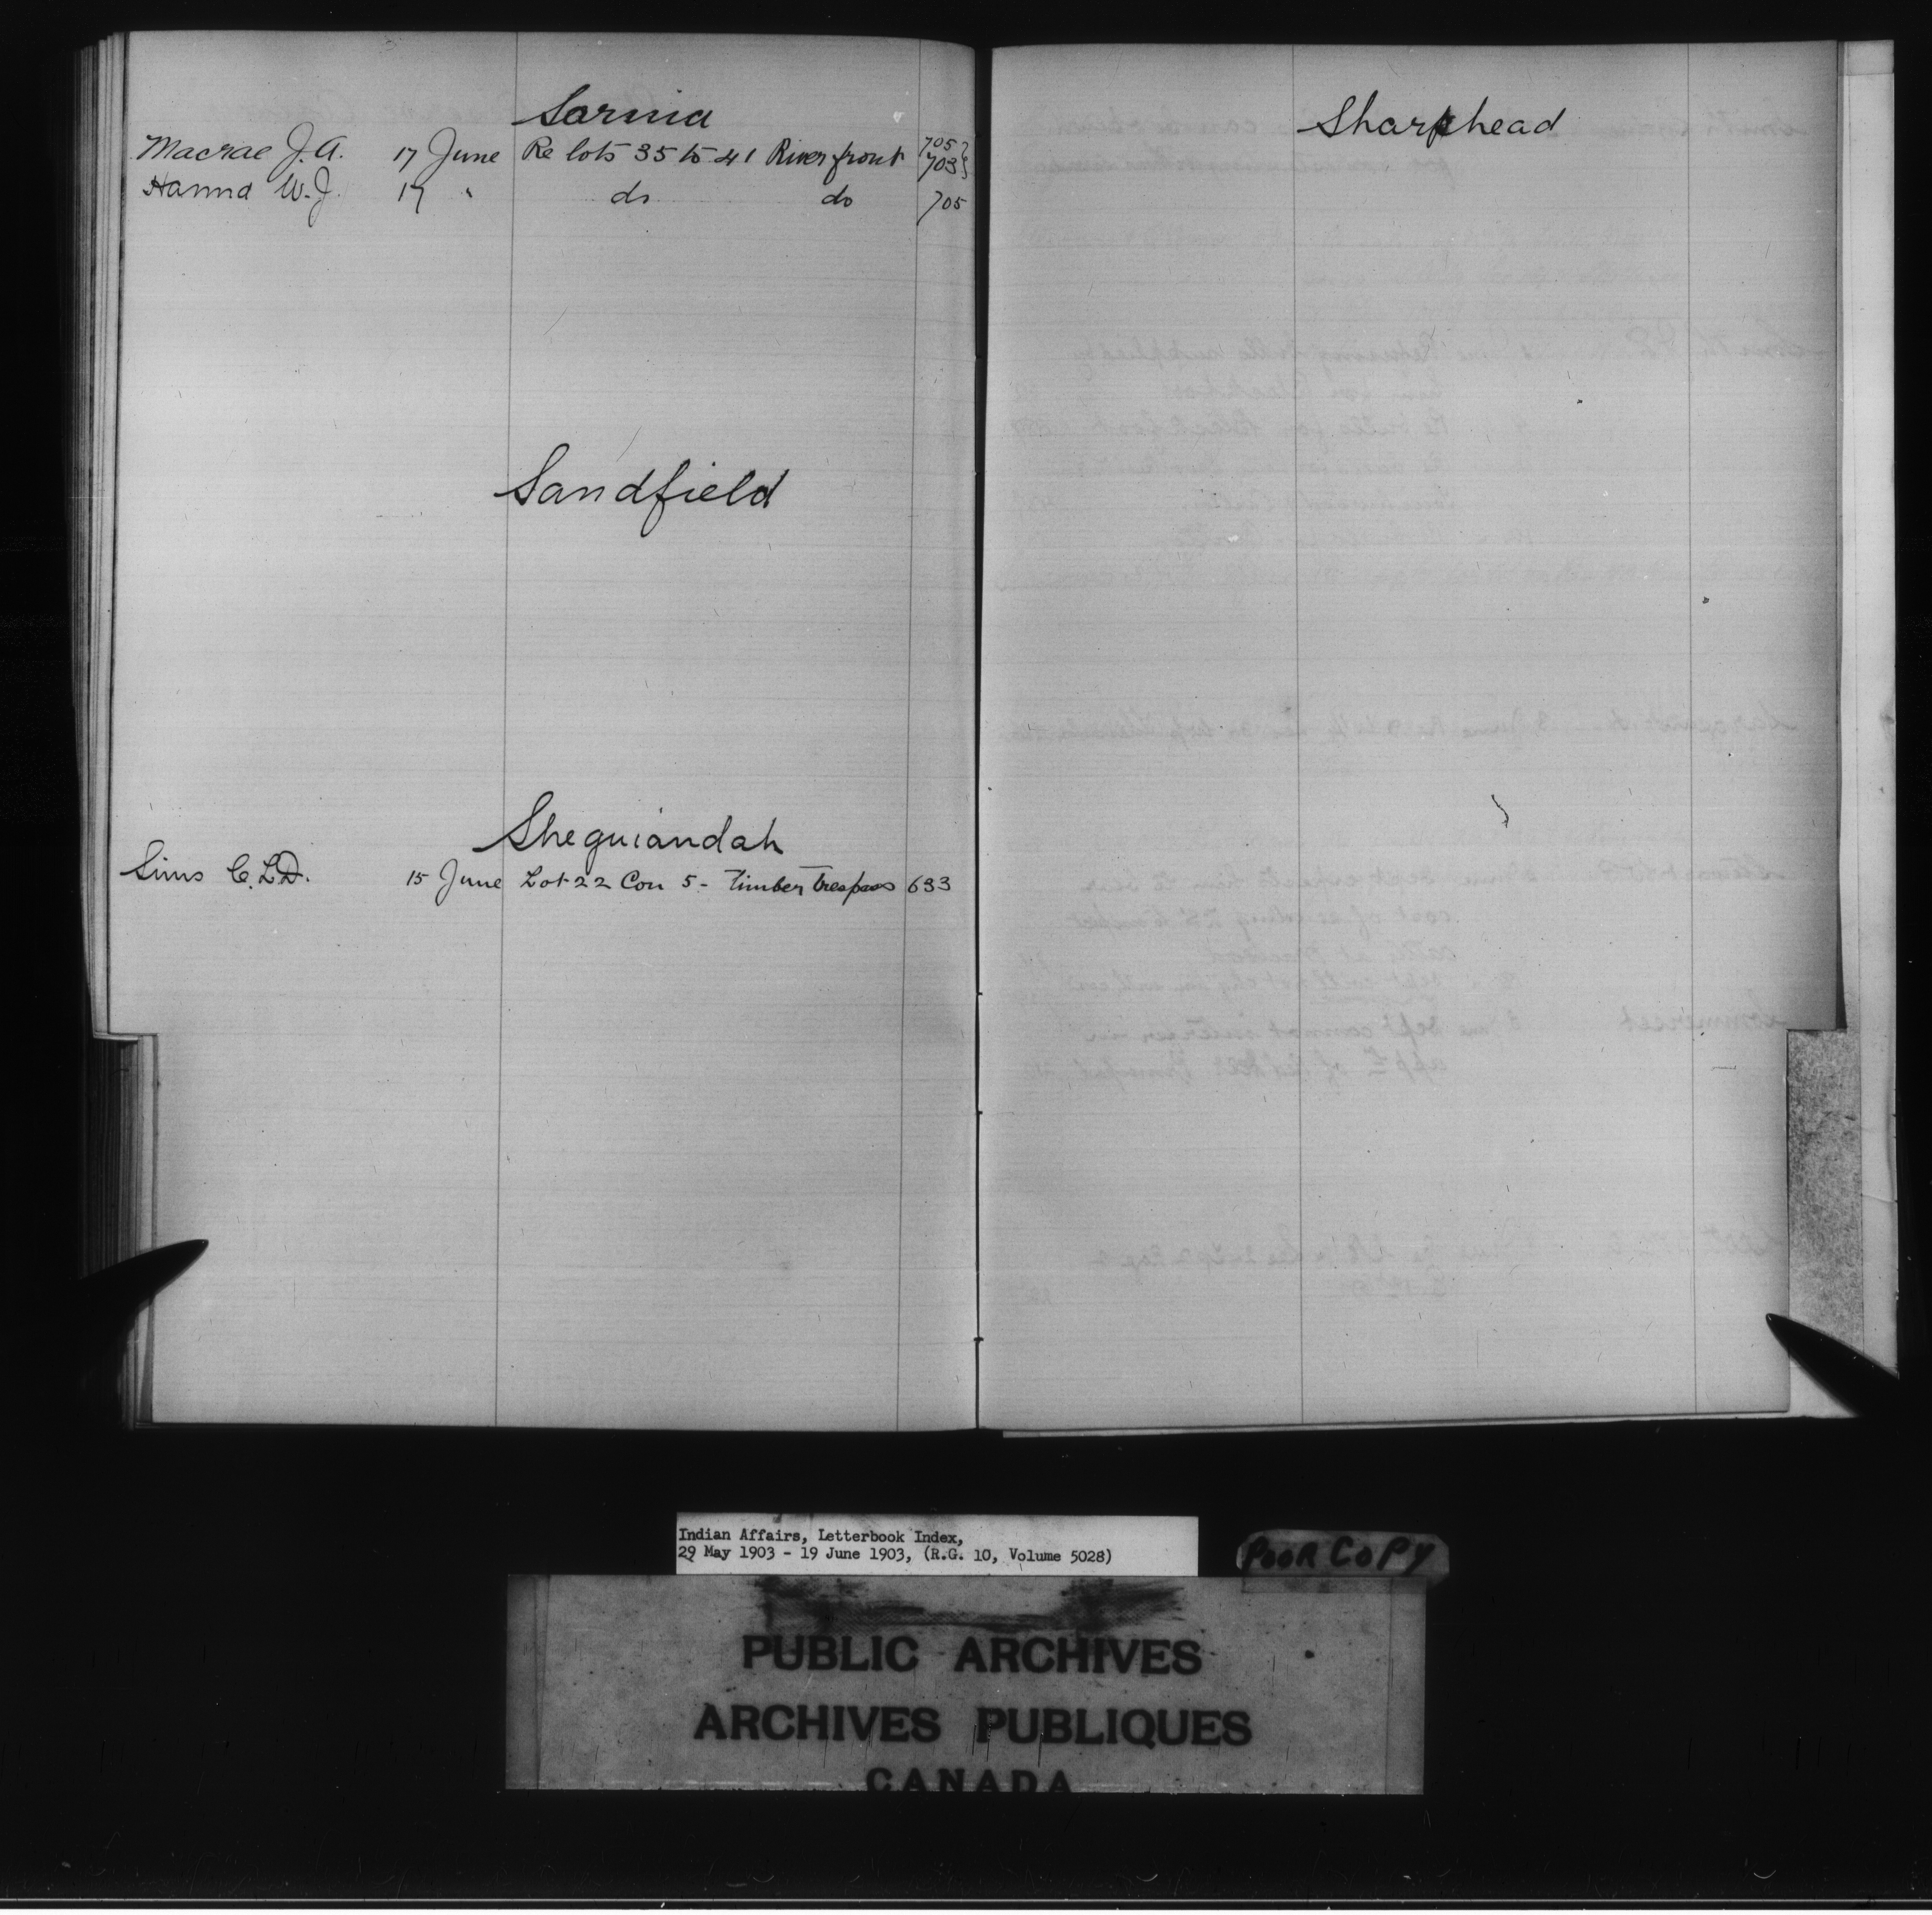 Sarnia
Macrae J.A. 17 June Re lots 35 to 41 River front 705 }
703 }
Hanna W.J. 17 " do do 705
Sandfield
Sheguiandah
Sims C.L.D. 15 June Lot 22 Con 5 - Timber trespass 633
Sharphead
Indian Affairs, Letterbook Index,
29 May 1903 - 19 June 1903, (R.G. 10, Volume 5028)
POOR COPY
PUBLIC ARCHIVES
ARCHIVES PUBLIQUES
CANADA